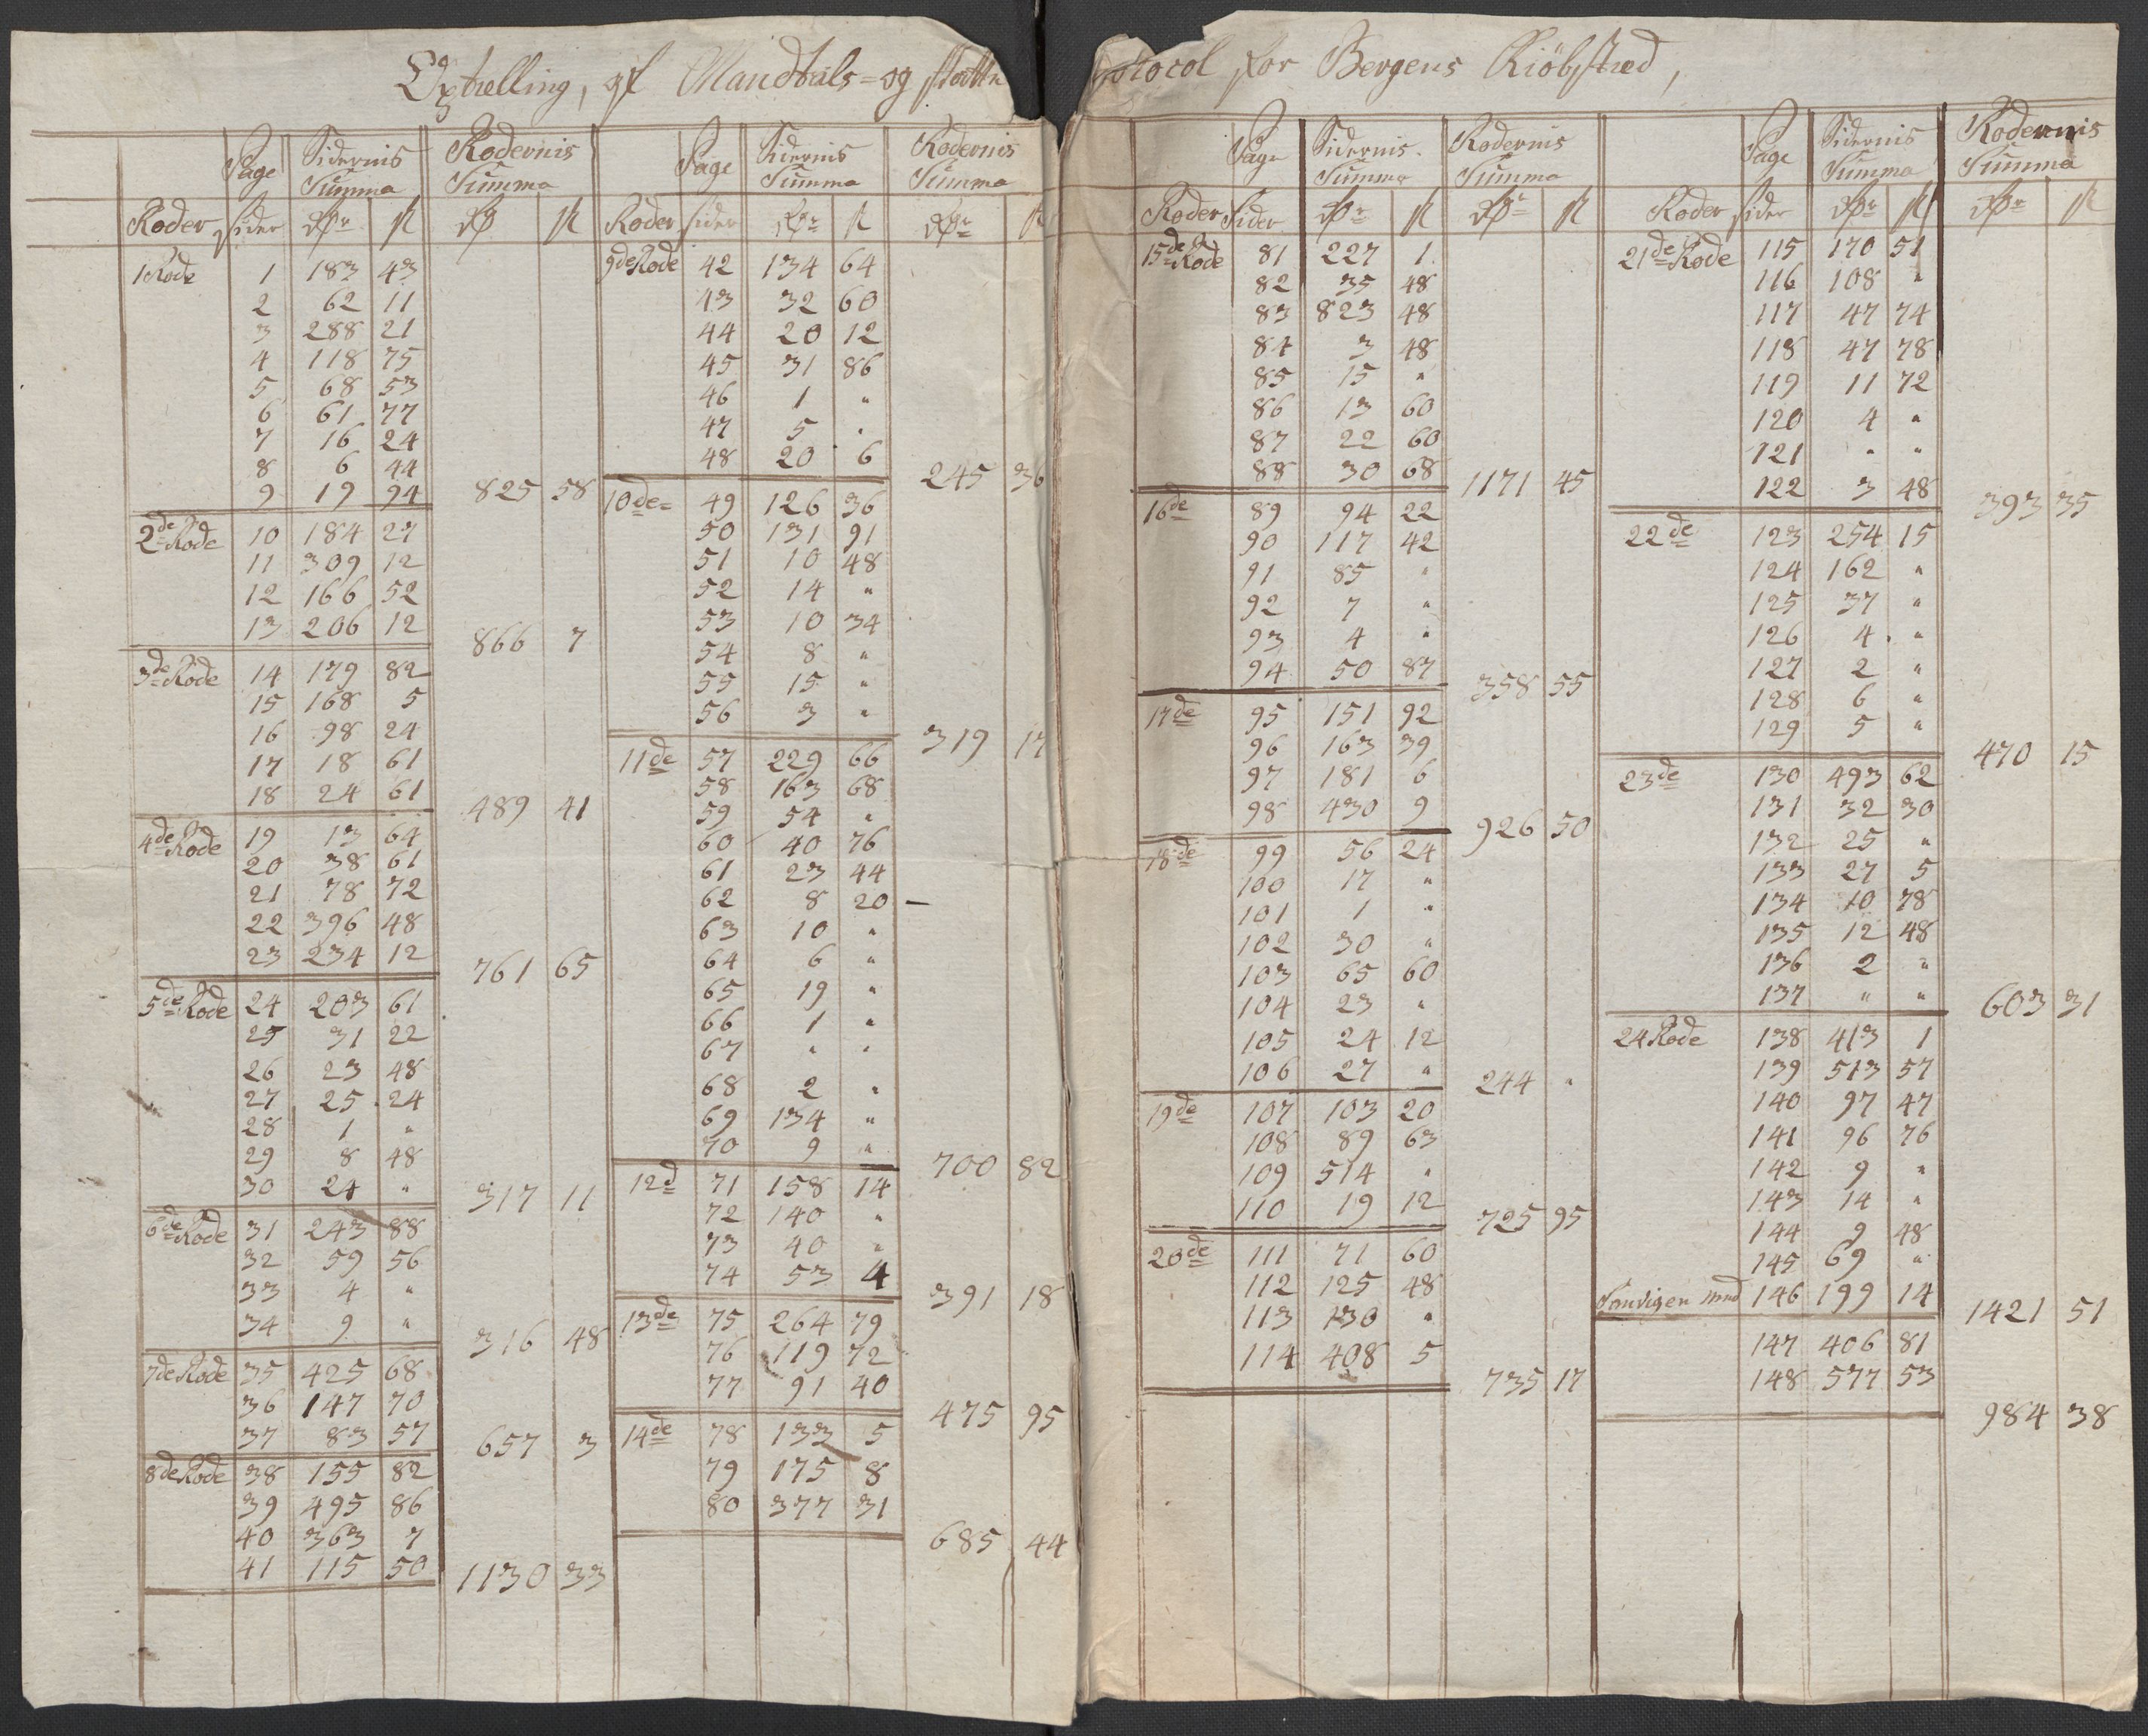 Optælling, af Mandtals=og Skatte
otocol for Bergens Kiöbstæd,
Page Sidernis Summa Rodernis Summa
Roder Sider Rdr ß Rd ß
1 Rode 1 183 43
2 62 11
3 288 21
4 118 75
5 68 53
6 61 77
7 16 24
8 6 44
9 19 94
825 58
2de Rode 10 184 27
11 309 12
12 166 52
13 206 12
866 7
3de Rode 14 179 82
15 168 5
16 98 24
17 18 61
18 24 61
489 41
4de Rode 19 13 64
20 38 61
21 78 72
22 396 48
23 234 12
761 65
5de Rode 24 203 61
25 31 22
26 23 48
27 25 24
28 1 "
29 8 48
30 24 "
317 11
6de Rode 31 243 88
32 59 56
33 4 "
34 9 "
316 48
7de Rode 35 425 68
36 147 70
37 83 57
657 3
8de Rode 38 155 82
39 495 86
40 363 7
41 115 50
1130 33
Page Sidernis Summa Rodernis Summa
Roder Sider Rdr ß Rdr ß
9de Rode 42 134 64
43 32 60
44 20 12
45 31 86
46 1 "
47 5 "
48 20 6
245 36
10de= 49 126 36
50 131 91
51 10 48
52 14 "
53 10 34
54 8 "
55 15 "
56 3 "
319 17
11de 57 229 66
58 163 68
59 54 "
60 40 76
61 23 44
62 8 20 –
63 10 "
64 6 "
65 19 "
66 1 "
67 " "
68 2 "
69 134 "
70 9 "
700 82
12d 71 158 14
72 140 "
73 40 "
74 53 4
391 18
13de 75 264 79
76 119 72
77 91 40
475 95
14de 78 133 5
79 175 8
80 377 31
685 44
Page Sidernis Summa Rodernis Summa
Roder Sider Rdr ß Rdr ß
15de Rode 81 227 1
82 35 48
83 823 48
84 3 48
85 15 "
86 13 60
87 22 60
88 30 68
1171 45
16de 89 94 22
90 117 42
91 85 "
92 7 "
93 4 "
94 50 87
358 55
17de 95 151 92
96 163 39
97 181 6
98 430 9
926 50
18de 99 56 24
100 17 "
101 1 "
102 30 "
103 65 60
104 23 "
105 24 12
106 27 "
244 "
19de 107 103 20
108 89 63
109 514 "
110 19 12
725 95
20de 111 71 60
112 125 48
113 130 "
114 408 5
735 17
Page Sidernis Summa Rodernis Summa
Roder Sider Rdr ß Rdr ß
21de Rode 115 170 51
116 108 "
117 47 74
118 47 78
119 11 72
120 4 "
121 " "
122 3 48
393 35
22de 123 254 15
124 162 "
125 37 "
126 4 "
127 2 "
128 6 "
129 5 "
470 15
23de 130 493 62
131 32 30
132 25 "
133 27 5
134 10 78
135 12 48
136 2 "
137 " "
603 31
24 Rode 138 413 1
139 513 57
140 97 47
141 96 76
142 9 "
143 14 "
144 9 48
145 69 "
Sandvigen 146 199 14
1421 51
147 406 81
148 577 53
984 38